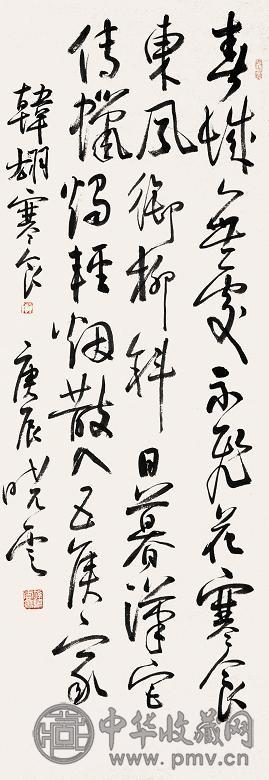 春城無處不飛花寒食
東風御柳斜日暮漢宮
傳蠟燭輕烟散入五侯家
韓翃寒食 庚辰晓云
中华收藏网
www.pmv.cn